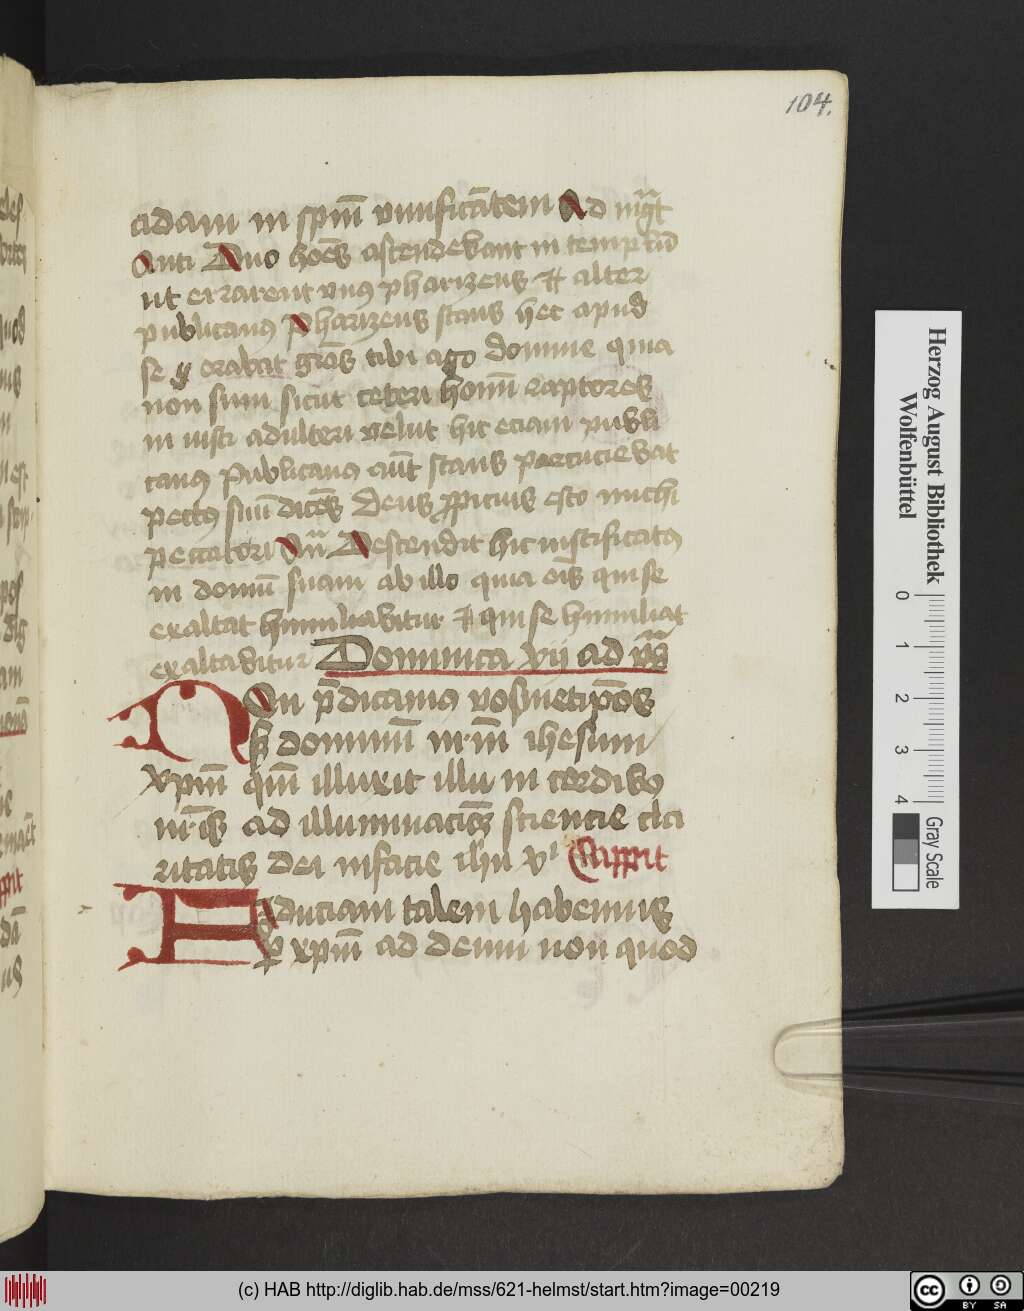 104.
adam in spm̄ viuificātem Ad mg̅t
Anti Duo hoēs ascendebant in templū
ut orarent vnus pharizeus et alter
publicanus Pharizeus stans hec apud
se orabat grās tibi ago domine quia
non sum sicut ceteri homī raptores
in iusti adulteri velut hic eciam publi
canus Publicanus aūt stans percuciebat
pectus suū dicēs Deus ꝓpicius esto michi
peccatori Dn̄ Descendit hic iustificatus
in domū suam ab illo quia oīs qui se
exaltat humiliabitur et qui se humiliat
exaltabitur Dominica xvij ad vs̄
Non p̄dicamus vosmetipōs
sꝫ dominū nr̄m ihesum
xpm̄ qm̄ illuxit illu in cordibꝰ
nr̄is ad illuminacōꝫ sciencie cla
ritatis dei in facie ihu v̄ Cappit
Fiduciam talem habemus
ꝑ xpm̄ ad deum non quod
Herzog August Bibliothek
Wolfenbüttel
0 1 2 3 4
Gray Scale
(c) HAB http://diglib.hab.de/mss/621-helmst/start.htm?image=00219
cc BY SA